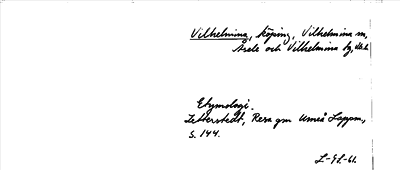 Vilhelmina, köping, Vilhelmina sn,
Åsele och Vilhelmina tg,
Etymologi.
Zetterstedt, Resa gm Umeå Lappm.,
s. 144.